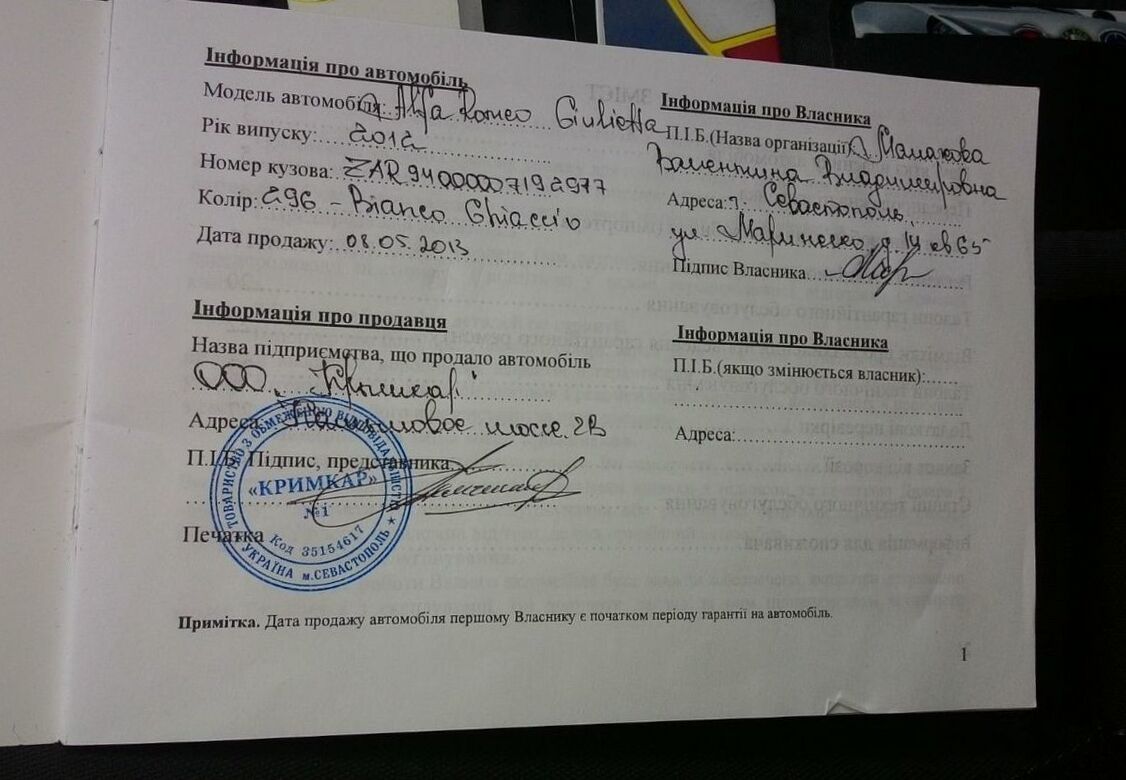 Інформація про автомобіль
Модель автомобіля: Alfa Romeo Giulietta
Рік випуску: 2012
Номер кузова: ZAR94000007192977
Колір: 296 - Bianco Ghiaccio
Дата продажу: 08.05.2013
Інформація про продавця
Назва підприємства, що продало автомобіль
ООО "Крымкар"
Адреса: шоссе 2В
П.І.Б. Підпис, представника
Печатка
ТОВАРИСТВО З ОБМЕЖЕНОЮ ВІДПОВІДАЛЬНІСТЮ
«КРИМКАР»
№1
Код 35154617
УКРАЇНА м.СЕВАСТОПОЛЬ
Інформація про Власника
П.І.Б.(Назва організації)
Валентина Владимировна
Адреса: г. Севастополь
ул. Маринеско д 14 кв 65
Підпис Власника
Інформація про Власника
П.І.Б.(якщо змінюється власник):
Адреса:
Примітка. Дата продажу автомобіля першому Власнику є початком періоду гарантії на автомобіль.
1